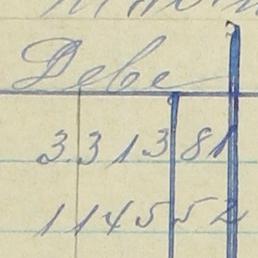 Debe
3.313 81
1145 52